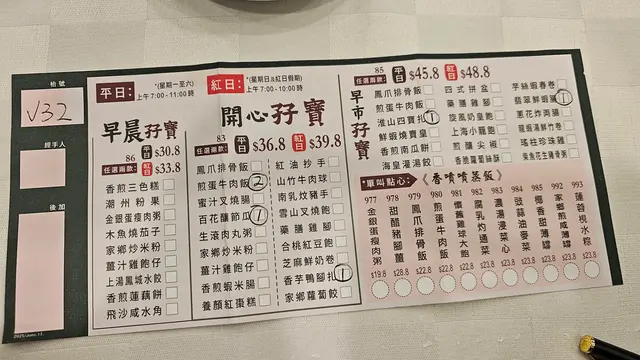 枱號
V32
經手人
後加
平日:
*(星期一至六)
上午7:00-11:00時
紅日:
*(星期日&紅日假期)
上午7:00-10:00時
早晨孖寶
86
任選兩款:
平日 $30.8
紅日 $33.8
香煎三色糕
潮州粉果
金銀蛋瘦肉粥
木魚燒茄子
家鄉炒米粉
薑汁雞飽仔
上湯鳳城水餃
香煎蓮藕餅
飛沙咸水角
開心孖寶
83
任選兩款:
平日 $36.8
紅日 $39.8
鳳爪排骨飯
煎蛋牛肉飯 2
蜜汁叉燒腸
百花釀節瓜 1
生滾肉丸粥
家鄉炒米粉
薑汁雞飽仔
香煎蝦米腸
養顏紅棗糕
紅油抄手
山竹牛肉球
南乳炆豬手
雪山叉燒飽
藥膳雞腳
合桃紅豆飽
芝麻鮮奶卷
香芋鴨腳扎 1
家鄉蘿蔔餃
早市孖寶
85
任選兩款:
平日 $45.8
紅日 $48.8
鳳爪排骨飯
煎蛋牛肉飯
淮山四寶扎 1
鮮蝦燒賣皇
香煎南瓜餅
海皇灌湯餃
四式拼盆
藥膳雞腳
旋風奶皇飽
上海小籠飽
煎釀尖椒
香揚蘿蔔絲酥
芋絲蝦春卷
翡翠鮮蝦腸 1
蔥花炸兩腸
龍蝦湯鮮竹卷
瑤柱珍珠雞
東魚花生豬骨粥
*單叫點心:
《香噴噴蒸飯》
977 金銀蛋瘦肉粥 $19.8
978 甜醋豬腳薑 $28.8
979 鳳爪排骨飯 $23.8
980 煎蛋牛肉飯 $23.8
981 懷舊雞球大飽 $23.8
982 腐乳灼通菜 $23.8
983 濃湯浸菜心 $23.8
984 豉蒜油麥菜 $23.8
985 椰香甜薄餐 $23.8
992 家鄉煎薄餐 $23.8
993 蓮蓉梘水粽 $23.8